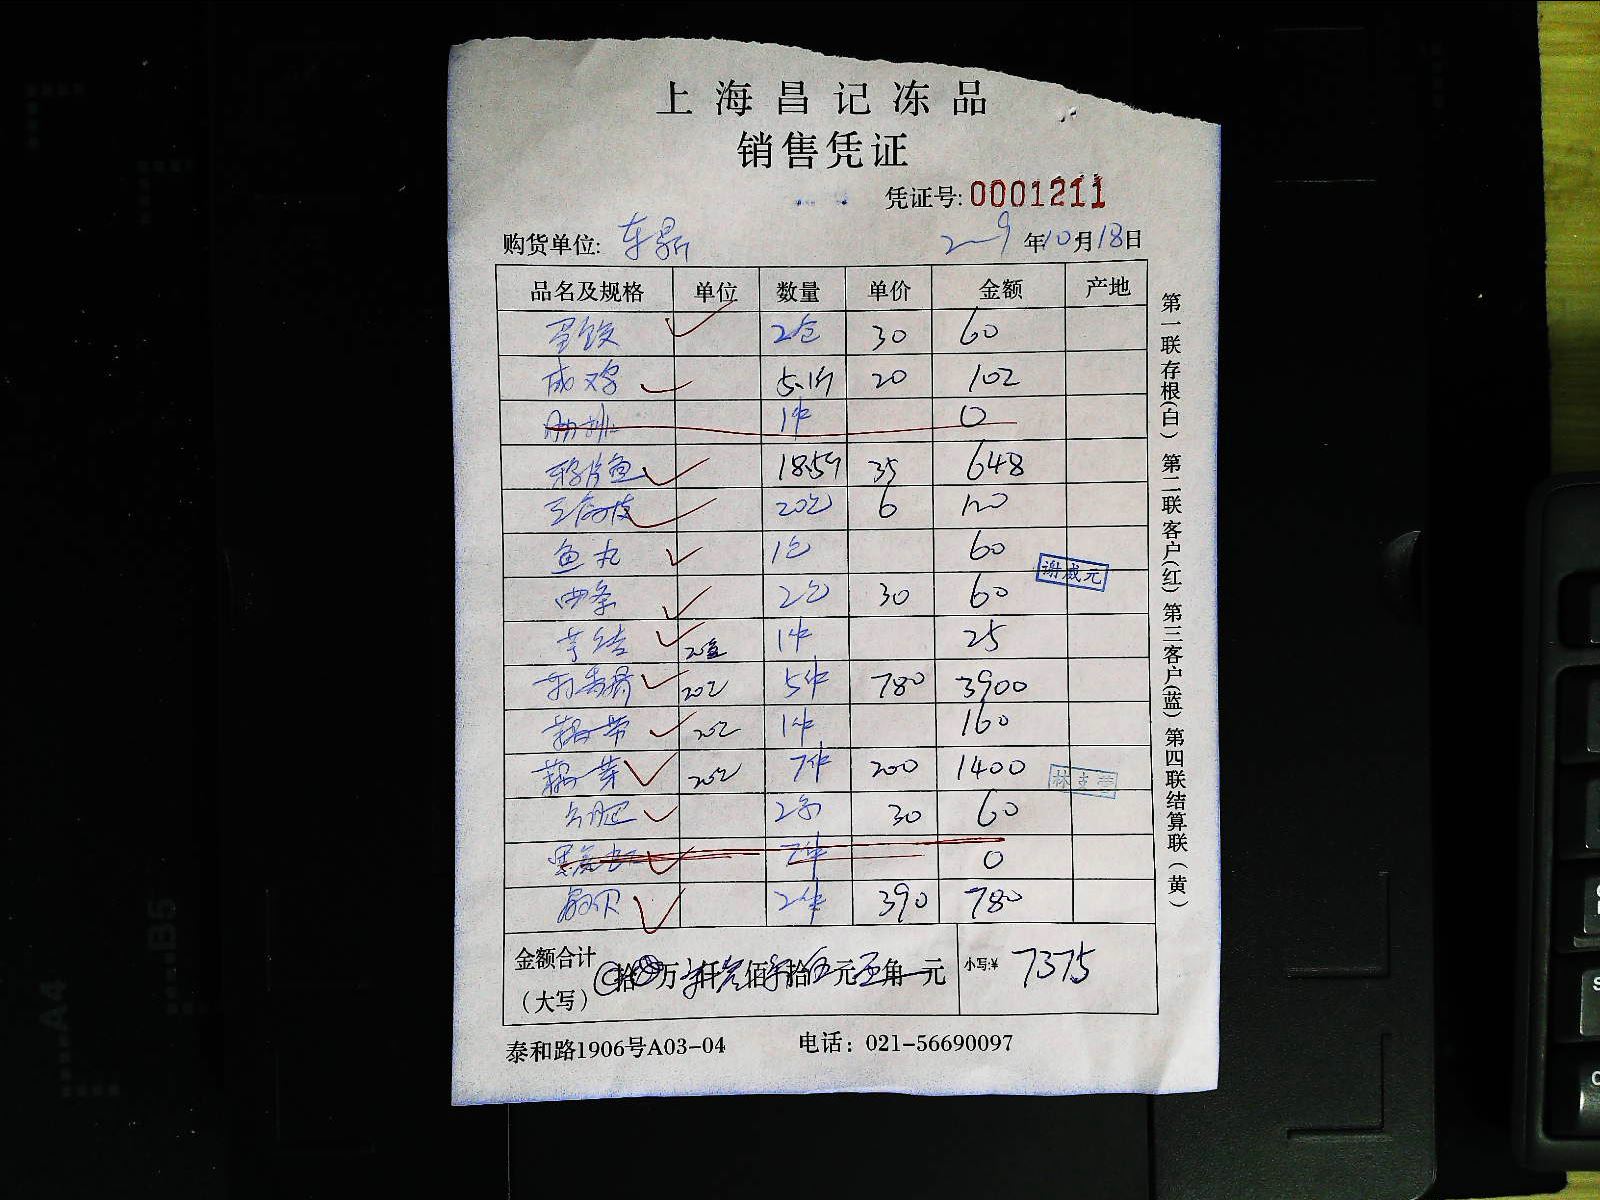 上海昌记冻品
销售凭证
凭证号: 0001211
购货单位: 东鼎 2009年10月18日
品名及规格 单位 数量 单价 金额 产地
蛋饺 2包 30 60
咸鸡 5.1斤 20 102
肋排 1件 0
鸦片鱼 18.5斤 35 648
20包 6 120
鱼丸 1包 60
2包 30 60
芋结 20盒 1件 25
20包 5件 780 3900
藕带 20包 1件 160
藕芽 20包 7件 200 1400
2条 30 60
2件 0
扇贝 2件 390 780
谢威元
林支营
金额合计
(大写)
拾 万 仟 佰 拾 伍元 角 元 小写:¥ 7375
泰和路1906号A03-04 电话: 021-56690097
第一联存根(白) 第二联客户(红) 第三客户(蓝) 第四联结算联(黄)
A4
B5